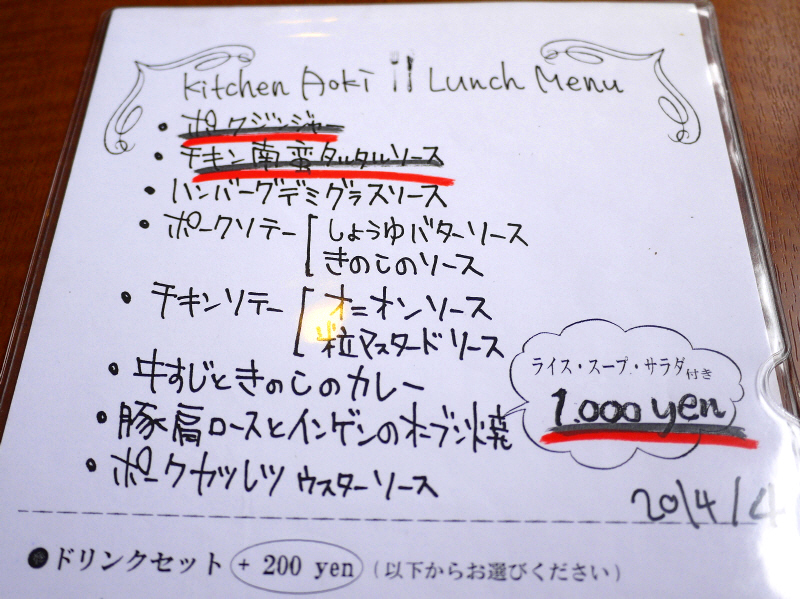 Kitchen Aoki Lunch Menu
・ポークジンジャー
・チキン南蛮タルタルソース
・ハンバーグデミグラスソース
・ポークソテー しょうゆバターソース
きのこのソース
・チキンソテー オニオンソース
粒マスタードソース
・牛すじときのこのカレー
・豚肩ロースとインゲンのオーブン焼
・ポークカツレツ ウスターソース
ライス・スープ・サラダ付き
1.000 yen
2014/4
●ドリンクセット + 200 yen (以下からお選びください)